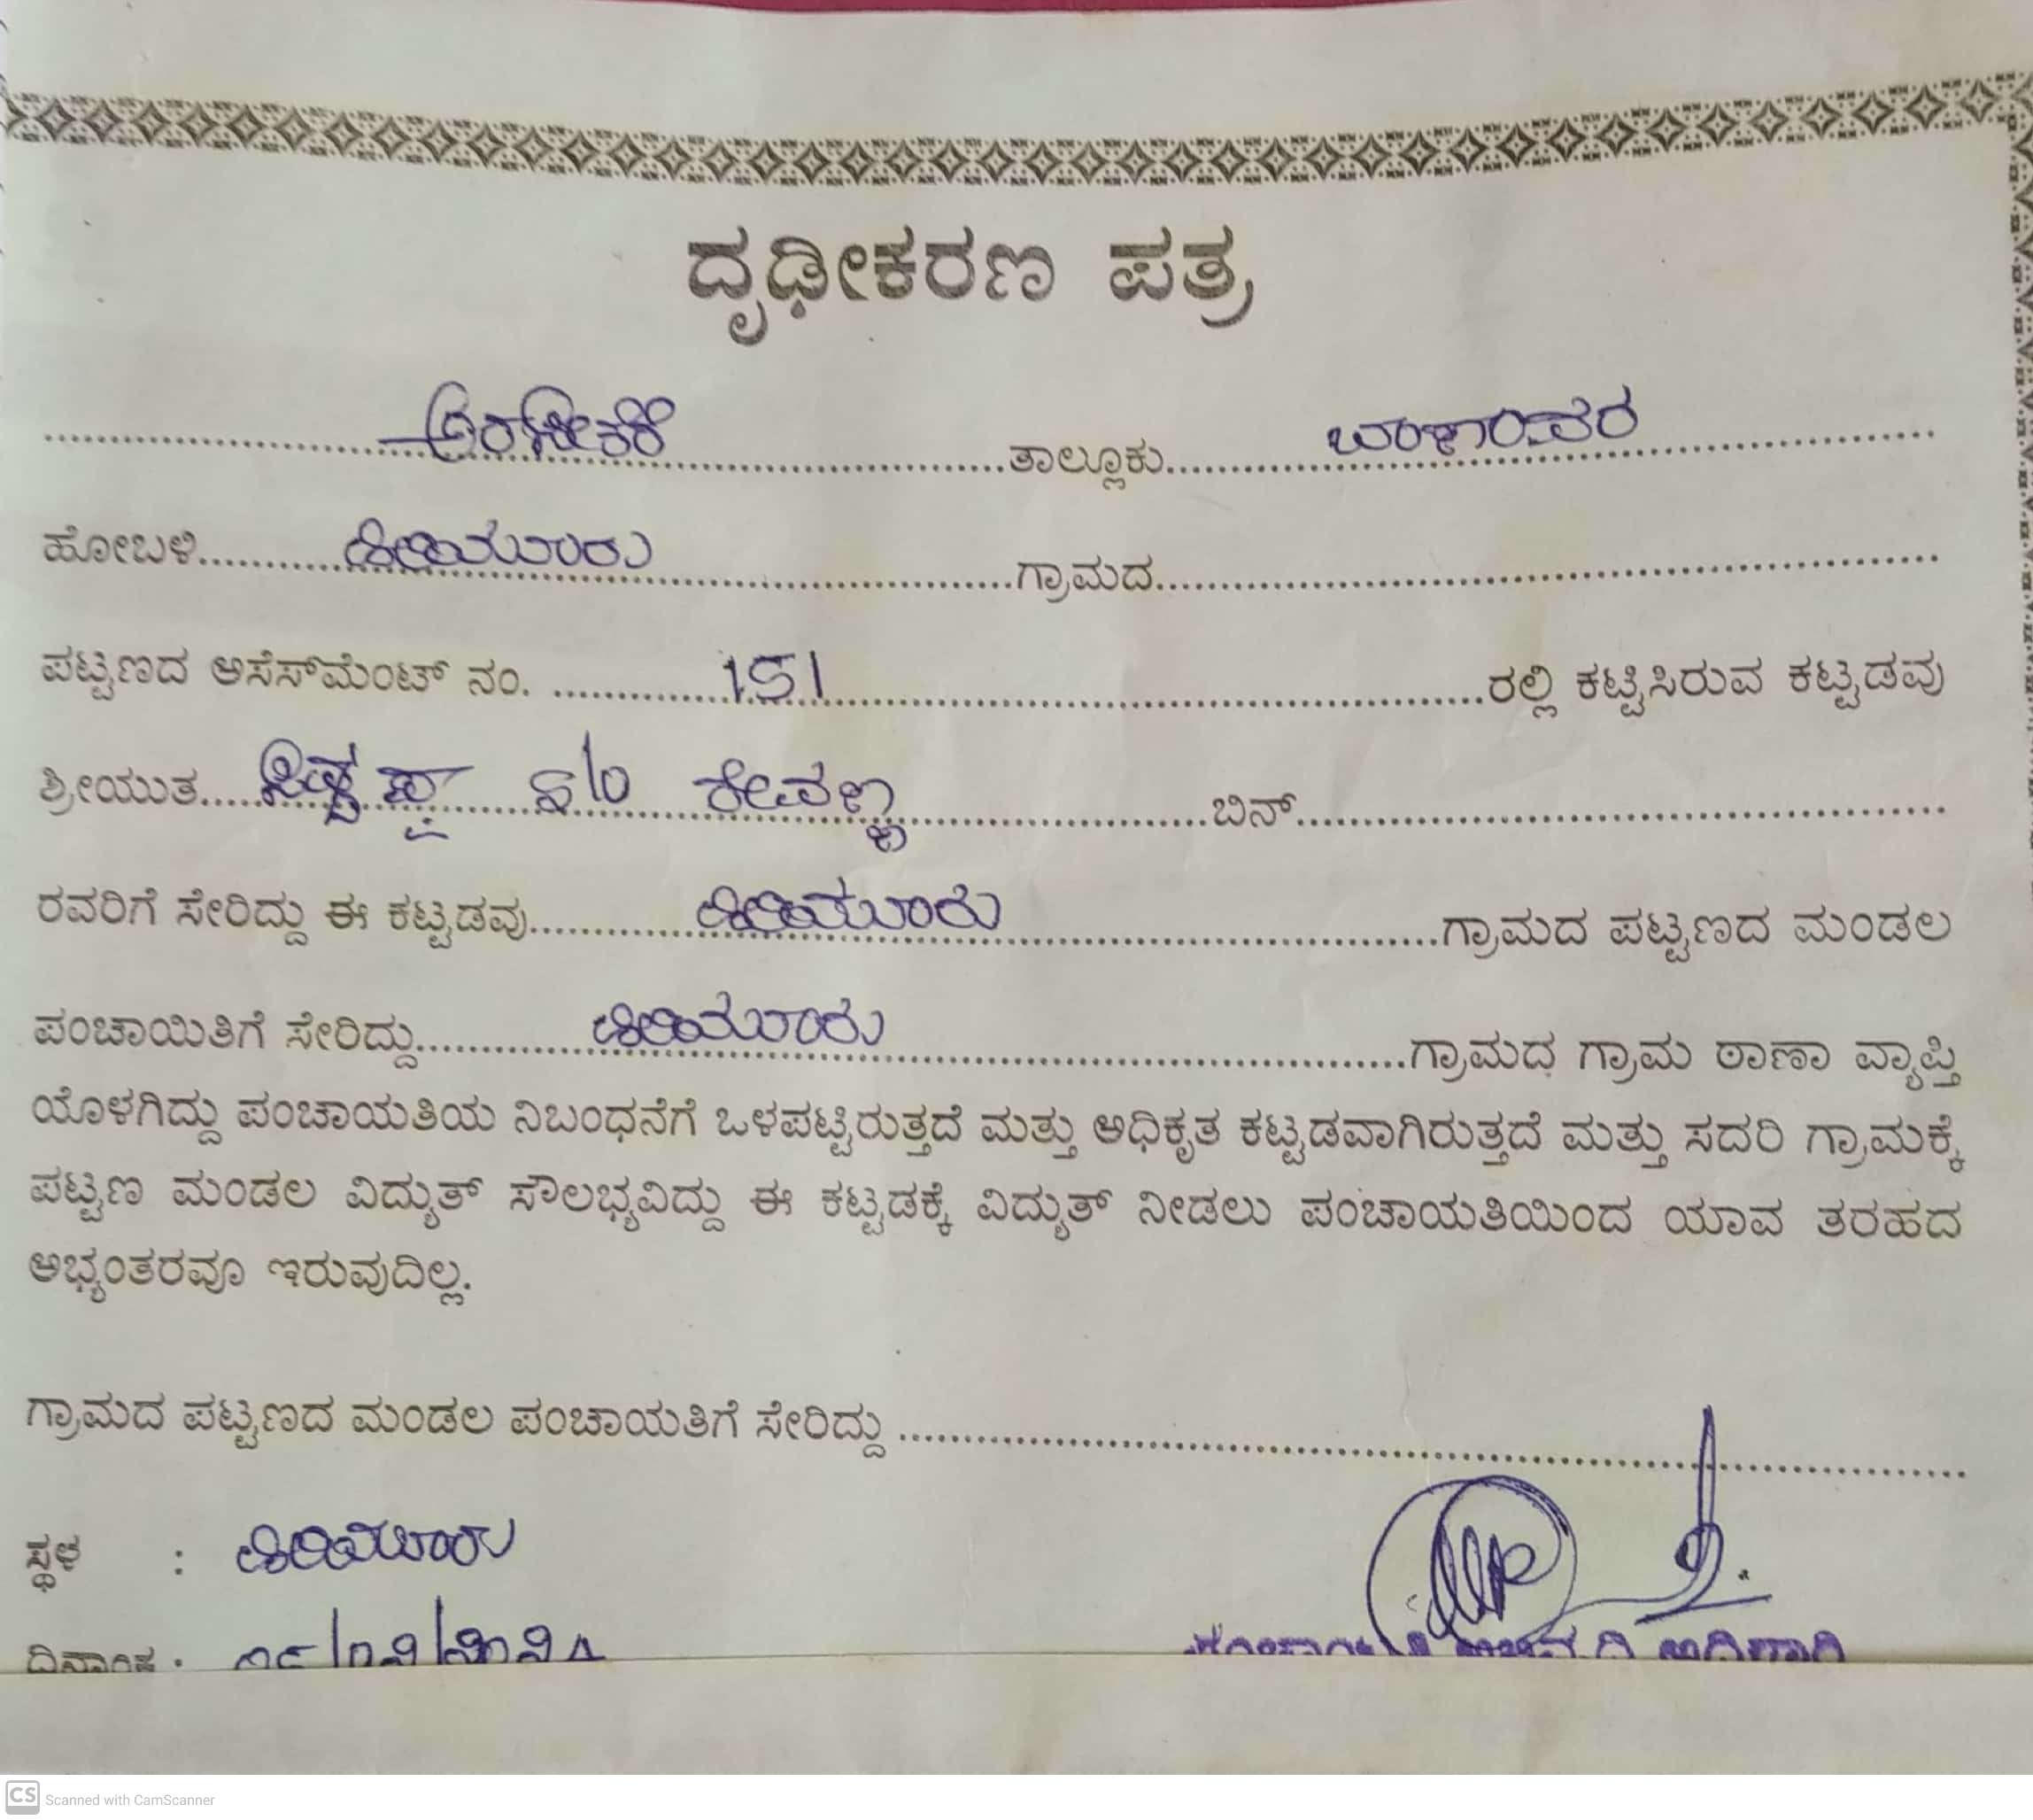 ದೃಢೀಕರಣ ಪತ್ರ
ಅರಸೀಕೆರೆ ತಾಲ್ಲೂಕು
ಹೋಬಳಿ ಗ್ರಾಮದ
ಪಟ್ಟಣದ ಅಸೆಸ್‌ಮೆಂಟ್ ನಂ. 151 ರಲ್ಲಿ ಕಟ್ಟಿಸಿರುವ ಕಟ್ಟಡವು
ಶ್ರೀಯುತ S/o ರೇವಣ್ಣ ಬಿನ್
ರವರಿಗೆ ಸೇರಿದ್ದು ಈ ಕಟ್ಟಡವು ಗ್ರಾಮದ ಪಟ್ಟಣದ ಮಂಡಲ
ಪಂಚಾಯಿತಿಗೆ ಸೇರಿದ್ದು ಗ್ರಾಮದ ಗ್ರಾಮ ಠಾಣಾ ವ್ಯಾಪ್ತಿ
ಯೊಳಗಿದ್ದು ಪಂಚಾಯತಿಯ ನಿಬಂಧನೆಗೆ ಒಳಪಟ್ಟಿರುತ್ತದೆ ಮತ್ತು ಅಧಿಕೃತ ಕಟ್ಟಡವಾಗಿರುತ್ತದೆ ಮತ್ತು ಸದರಿ ಗ್ರಾಮಕ್ಕೆ
ಪಟ್ಟಣ ಮಂಡಲ ವಿದ್ಯುತ್ ಸೌಲಭ್ಯವಿದ್ದು ಈ ಕಟ್ಟಡಕ್ಕೆ ವಿದ್ಯುತ್ ನೀಡಲು ಪಂಚಾಯತಿಯಿಂದ ಯಾವ ತರಹದ
ಅಭ್ಯಂತರವೂ ಇರುವುದಿಲ್ಲ.
ಗ್ರಾಮದ ಪಟ್ಟಣದ ಮಂಡಲ ಪಂಚಾಯತಿಗೆ ಸೇರಿದ್ದು
ಸ್ಥಳ :
ದಿನಾಂಕ :
CS Scanned with CamScanner